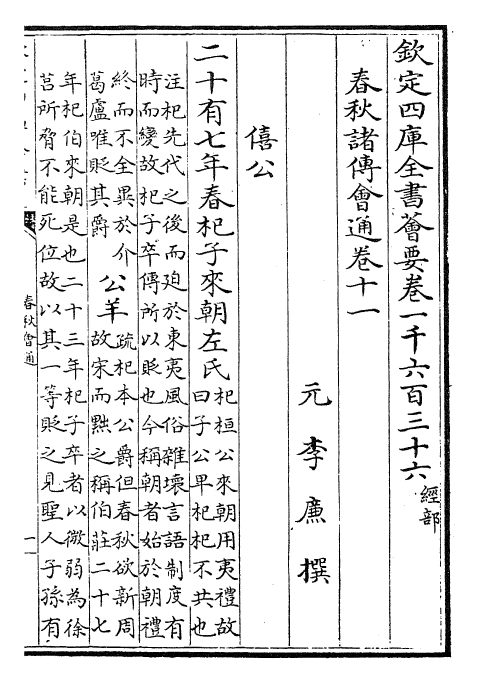 欽定四庫全書薈要卷一千六百三十六經部
春秋諸傳會通卷十一
元李廉撰
僖公
二十有七年春杞子來朝左氏杞桓公來朝用夷禮故
曰子公卑杞杞不共也
注杞先代之後而迫於東夷風俗雜壞言語制度有
時而變故杞子卒傳所以貶也今稱朝者始於朝禮
終而不全異於介
葛盧唯貶其爵
公羊疏杞本公爵但春秋欲新周
故宋而黜之稱伯莊二十七
年杞伯來朝是也二十三年杞子卒者以微弱為徐
莒所脅不能死位故以其一等貶之見聖人子孫有
春秋會通
一